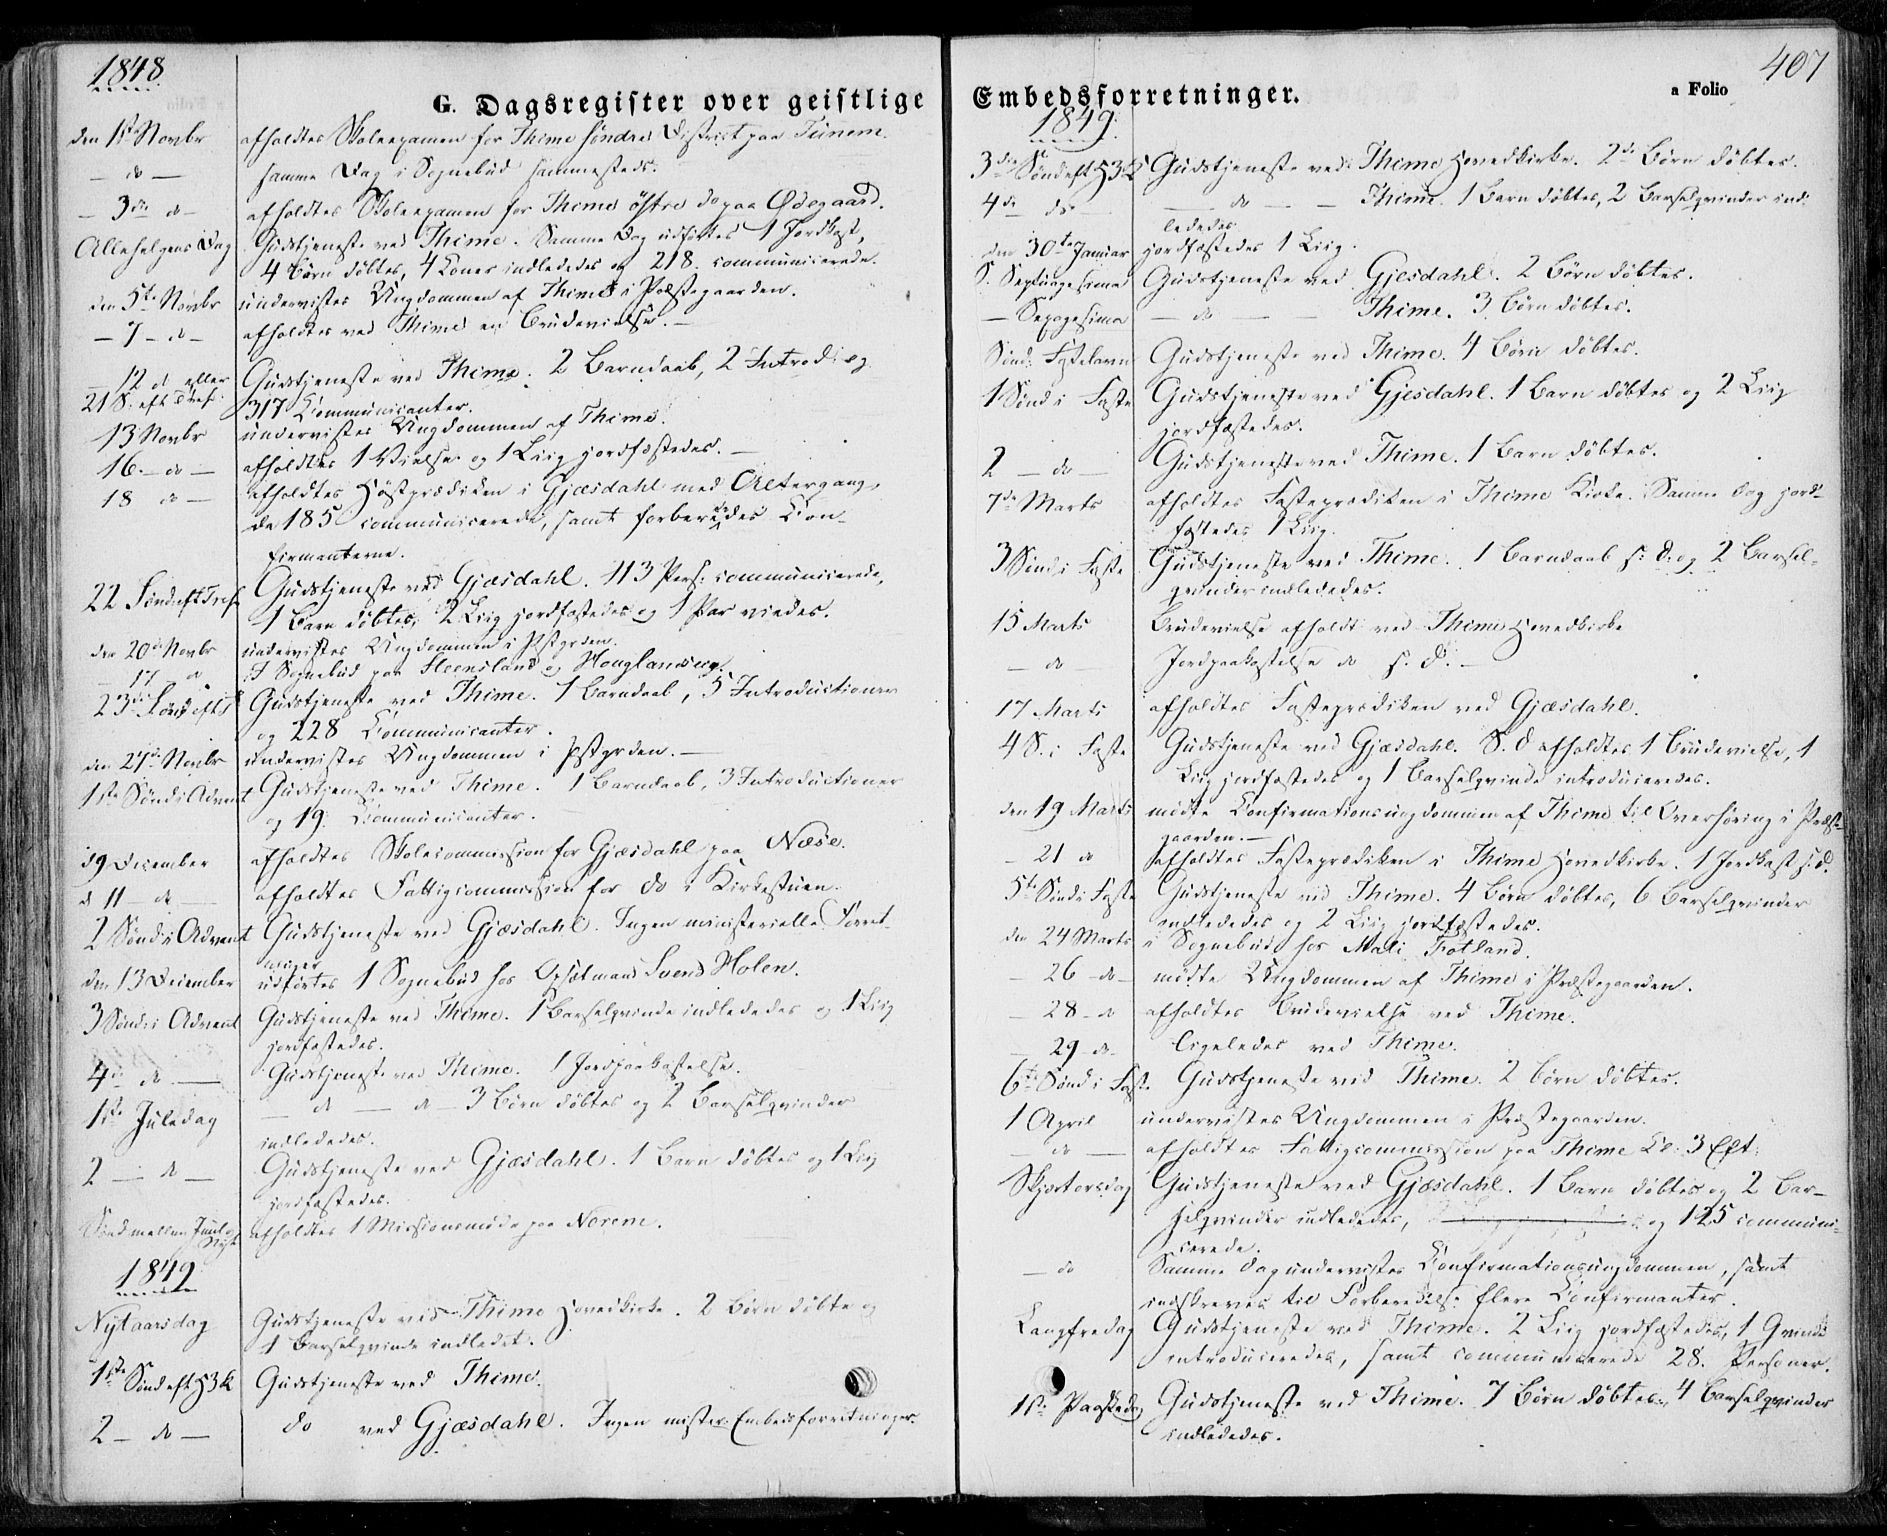 1848
G. Dagsregister over geistlige
den 1ste Novbr afholdtes Skoleexamen for Thime søndre District paa Tunem.
— do — samme Dag i Sognebud sammesteds.
— 3die do — afholdtes Skoleexamen for Thime østre do paa Ødegaard.
Allehelgens Dag Gudstjeneste ved Thime. Samme Dag udførtes 1 Jordkast,
4 Børn døbtes, 4 Koner indlededes og 218 communicerede.
den 5te Novbr undervistes Ungdommen af Thime i Præstegaarden.
— 7 — do — afholdtes ved Thime en Brudevielse. —
— 12 d eller Gudstjeneste ved Thime. 2 Barndaab, 2 Introd: og
21 S. eft Tref. 317 Communicanter.
13 Novbr undervistes Ungdommen af Thime.
16 — do — afholdtes 1 Vielse og 1 Liig jordfæstedes. —
18 do — afholdtes Høstprædiken i Gjæsdahl med Altergang,
da 185 communicerede, samt forberededes Con-
firmanterne.
22 Søndeft Tref Gudstjeneste ved Gjæsdahl. 113 Pers: communicerede,
1 Barn døbtes, 2 Liig jordfæstedes og 1 Par viedes.
den 20de Novbr undervistes Ungdommen i Pstgrden.
— 17 — do I Sognebud paa Steensland og Houglands
23de Søndeft T Gudstjeneste ved Thime. 1 Barndaab, 5 Introductioner
og 228 Communicanter.
den 27de Novbr undervistes Ungdommen i Pstgrden. —
1ste Sønd i Advent Gudstjeneste ved Thime. 1 Barndaab, 3 Introductioner
og 19. Communicanter.
d 9 December afholdtes Skolecommission for Gjæsdahl paa Næse.
d 11 — do — afholdtes Fattigcommission for do i Kirkestuen.
2 Sønd i Advent Gudstjeneste ved Gjæsdahl. Ingen ministerielle Forret-
ninger
den 13 December udførtes 1 Sognebud hos Opsitmand Svend Holen.
3 Sønd i Advent Gudstjeneste ved Thime. 1 Barselqvinde indlededes og 1 Liig
jordfæstedes.
4de do — Gudstjeneste ved Thime. 1 Jordpaakastelse.
1ste Juledag — do — do — 3 Børn døbtes og 2 Barselqvinder
indlededes.
2 — do — Gudstjeneste ved Gjæsdahl. 1 Barn døbtes og 1 Liig
jordfæstedes.
Sønd mellem Juul og Nyt afholdtes 1 Missionsmøde paa Norem.
1849
Nytaarsdag Gudstjeneste ved Thime Hovedkirke. 2 Børn døbte og
1 Barselqvinde indledet.
1ste Søndeft H3K Gudstjeneste ved Thime.
2 — do — do ved Gjæsdahl. Ingen minister Embedsforretninger.
407
Embedsforretninger.
a Folio
1849.
3die Søndeft H3K Gudstjeneste ved Thime Hovedkirke. 2de Børn døbtes.
4de do — — do — — Thime. 1 Barn døbtes, 2 Barselqvinder ind-
lededes
den 30te Januar jordfæstedes 1 Liig.
S. Septuagesima Gudstjeneste ved Gjesdahl. 2 Børn døbtes.
— Sexagesima — do — — Thime. 3 Børn døbtes.
Sønd. Fastelavn Gudstjeneste ved Thime. 4 Børn døbtes.
1 Sønd i Faste Gudstjeneste ved Gjesdahl. 1 Barn døbtes og 2 Liig
jordfæstedes.
2 — do — Gudstjeneste ved Thime. 1 Barn døbtes.
7de Marts afholdtes Fasteprædiken i Thime Kirke. Samme Dag jord-
fæstedes 1 Liig.
3 Sønd i Faste Gudstjeneste ved Thime. 1 Barndaab s: d. og 2 Barsel-
qvinder indlededes.
15 Marts Brudevielse afholdt ved Thime Hovedkirke
— do — Jordpaakastelse do s. d. —
17 Marts afholdtes Fasteprædiken ved Gjæsdahl.
4 S. i Faste Gudstjeneste ved Gjæsdahl. S. d afholdtes 1 Brudevielse, 1
Liig jordfæstedes og 1 Barselqvinde introduceredes.
den 19 Marts mødte Confirmationsungdommen af Thime til Overhøring i Præste-
gaarden. —
— 21 do afholdtes Fasteprædiken i Thime Hovedkirke. 1 Jordkast s. d.
5te Sønd i Faste Gudstjeneste ved Thime. 4 Børn døbtes, 6 Barselqvinder
indlededes og 2 Liig jordfæstedes.
den 24 Marts i Sognebud hos Mali Fotland.
— 26 — do — mødte Ungdommen af Thime i Præstegaarden.
— 28 — do afholdtes Brudevielse ved Thime.
29 — do — ligeledes ved Thime.
6te Sønd i Faste Gudstjeneste ved Thime. 2 Børn døbtes.
1 April undervistes Ungdommen i Præstegaarden.
— do — afholdtes Fattigcommission paa Thime Kl: 3 Eft:
Skjærtorsdag Gudstjeneste ved Gjæsdahl. 1 Barn døbtes og 2 Bar-
selqvinder indlededes, og 125 communi-
cerede.
— do Samme Dag undervistes Confirmationsungdommen, samt
indskreves til Forberedelse flere Confirmanter.
Langfredag Gudstjeneste ved Thime. 2 Liig jordfæstedes, 1 Qvinde
introduceredes, samt communicerede 28. Personer.
1ste Paaskedag Gudstjeneste ved Thime. 7 Børn døbtes. 4 Barselqvinder
indlededes.